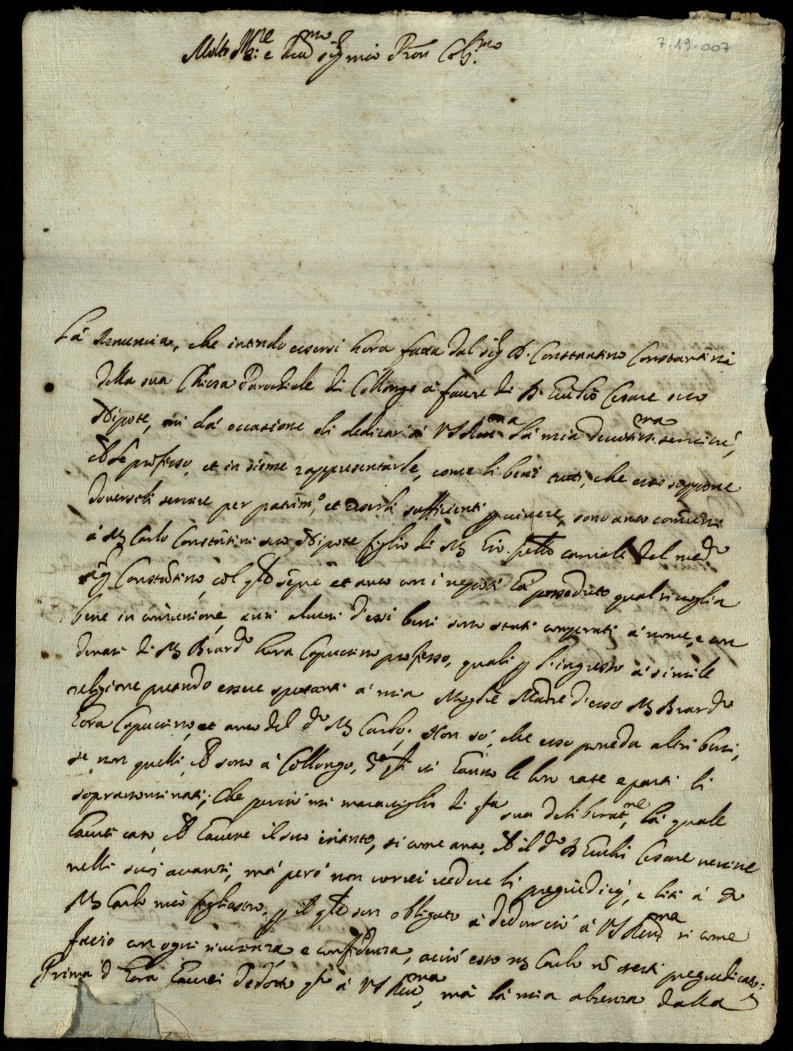 7-19-007
Molto Ill.re e Rev.mo sig.r mio Pron Col.mo
La Renuncia, che intendo essersi hora fatta dal sig.r D. Constantino Constantini
della sua Chiesa Parochiale di Collongo à favore di D. Giulio Cesare suo
Nipote, mi dà occasione di dedicarli à VS Rev.ma la mia devotiss.ma servitù,
et in sieme rappresentarle, come li beni tutti, che esso suppone
doverseli servare per patrim.o, et esserli sufficienti p vivere, sono anco comuni
à M Carlo Constantini suo Nipote figlio di M Gio. fratello carnale del med.o
sig.r Constantino, col q.le sempre et anco con i nepoti hà posseduto qual si voglia
bene in comunione, anzi alcuni d'essi beni sono stati comprati à nome, e con
denari di M Berard.o hora Capuccino professo, quali p l'ingresso à simile
religione puonno essere spettanti à mia Moglie Madre d'esso M Berard.o
hora Capuccino, et anco del d.o M Carlo. Non sò, che esso possieda altri beni,
se non quelli, sono à Collongo, vi hanno le loro rate e parti li
sopranominati; che perciò mi maraviglio di q.sta sua deliberat.ne, la quale
haverà caro, havere il suo intento, si come anco, il d.o D Giulio Cesare venire
nelli suoi avanzi, mà però non vorrei vedere li pregiuditij, e liti à d.o
M Carlo mio figliastro, p il q.le son obligato à dedurciò à VS Rev.ma si come
faccio con ogni riverenza e confidenza, acciò esso M Carlo nò resti pregiudicato:
Prima d' hora haurei dedotto q.sto à VS Rev.ma, mà la mia absenza dalla